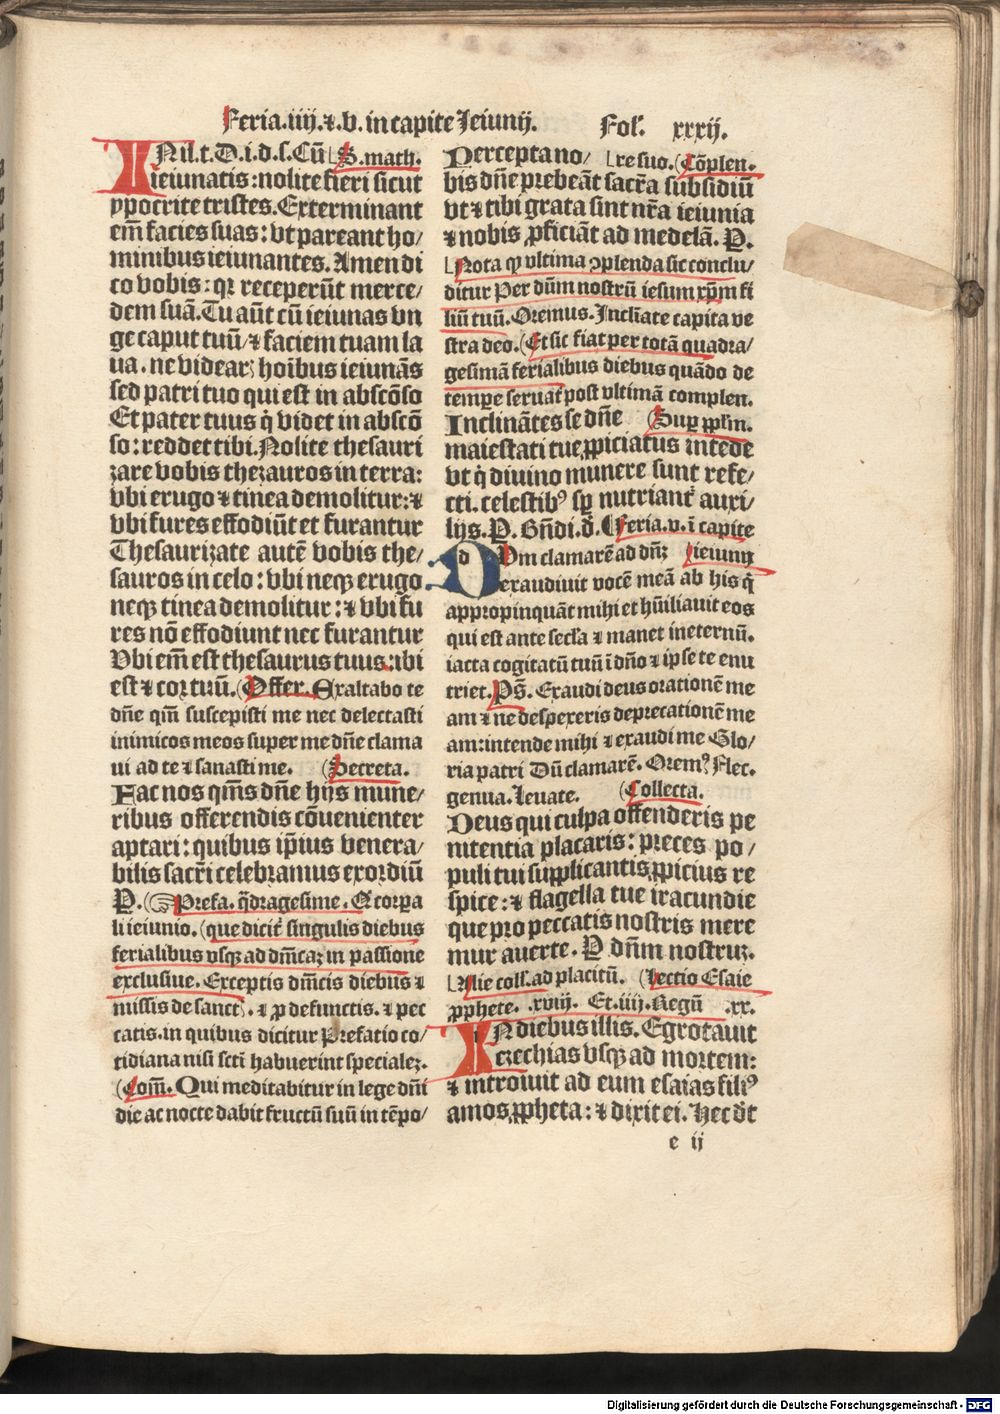 Feria.iiij.⁊.v. in capite Jeiunij.
Fol. xxxij.
IN il. t. D. i. d. s. Cū S. math.
ieiunatis: nolite fieri sicut
ypocrite tristes. Exterminant
em̄ facies suas: vt pareant ho/
minibus ieiunantes. Amen di
co vobis: qꝛ receperūt merce/
dem suā. Tu aūt cū ieiunas vn
ge caput tuū/ ⁊ faciem tuam la
ua. ne videarꝭ hoībus ieiunās
sed patri tuo qui est in abscōso
Et pater tuus q̇ videt in abscō
so: reddet tibi. Nolite thesauri
zare vobis thezauros in terra:
vbi erugo ⁊ tinea demolitur: ⁊
vbi fures effodiūt et furantur
Thesaurizate autē vobis the/
sauros in celo: vbi neqꝫ erugo
neqꝫ tinea demolitur: ⁊ vbi fu
res nō effodiunt nec furantur
Vbi em̄ est thesaurus tuus: ibi
est ⁊ cor tuū. (Offer. Exaltabo te
dn̄e qm̄ suscepisti me nec delectasti
inimicos meos super me dn̄e clama
ui ad te ⁊ sanasti me. (Secreta.
Fac nos qm̄s dn̄e hijs mune/
ribus offerendis cōuenienter
aptari: quibus ip̄ius venera/
bilis sacr̄i celebramus exordiū
P. (☞ Prefa. q̄dragesime. Q corpa
li ieiunio. (que dicit̄ singulis diebus
ferialibus vsqꝫ ad dm̄caꝫ in passione
exclusiue. Exceptis dm̄cis diebus ⁊
missis de sanct̄. ⁊ ꝓ defunctis. ⁊ pec
catis. in quibus dicitur Prefatio co/
tidiana nisi sctī habuerint specialeꝫ.
(Com̄. Qui meditabitur in lege dn̄i
die ac nocte dabit fructū suū in tēpo/
Percepta no/ re suo. (Cōplen.
bis dn̄e prebeāt sacr̄a subsidiū
vt ⁊ tibi grata sint nr̄a ieiunia
⁊ nobis ꝓficiāt ad medelā. P.
Nota qꝫ vltima ꝯplenda sic conclu/
ditur Per dūm nostrū iesum xp̄m fi
liū tuū. Oremus. Incliate capita ve
stra deo. (Et sic fiat per totā quadra/
gesimā ferialibus diebus quādo de
tempe seruat̄ post vltimā complen.
Inclinātes se dn̄e (Suꝑ pp̄lm.
maiestati tue ꝓpiciatus intede
vt q̇ diuino munere sunt refe/
cti. celestibꝰ sp̄ nutriant̄ auxi/
lijs. P. Bn̄di. d̄. (Feria. v. ī capite
DVm clamarē ad dn̄ꝫ ieiunij
exaudiuit vocē meā ab his q̇
appropinquāt mihi et hūiliauit eos
qui est ante secl̄a ⁊ manet ineternū.
iacta cogitatū tuū ī dn̄o ⁊ ipse te enu
triet. Ps̄. Exaudi deus orationē me
am ⁊ ne despexeris deprecationē me
am: intende mihi ⁊ exaudi me Glo/
ria patri Dū clamarē. Oremꝰ Flec.
genua. Leuate. (Collecta.
Deus qui culpa offenderis pe
nitentia placaris: preces po/
puli tui supplicantis ꝓpicius re
spice: ⁊ flagella tue iracundie
que pro peccatis nostris mere
mur auerte. P dn̄m nostruꝫ.
Alie coll. ad placitū. (Lectio Esaie
ꝓphete. xviij. Et. iiij. Regū xx.
IN diebus illis. Egrotauit
ezechias vsqꝫ ad mortem:
⁊ introiuit ad eum esaias filiꝰ
amos ꝓpheta: ⁊ dixit ei. Hec dt̄
e ij
Digitalisierung gefördert durch die Deutsche Forschungsgemeinschaft - DFG